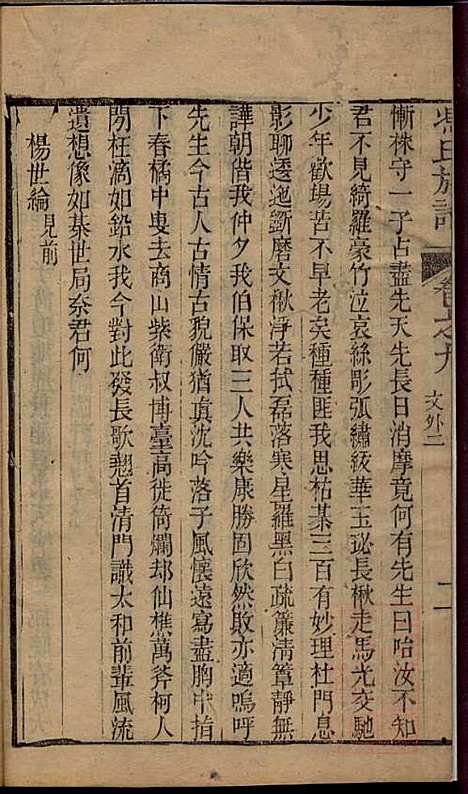 馮氏族譜
卷之九
文外二
二
漸株守一子占盡先天先長日消摩竟何有先生曰咍汝不知
君不見綺羅豪竹泣哀絲彫弧繡紱華玉珌長楸走馬光交馳
少年歡場苦不早老矣種種匪我思枯棊三百有妙理杜門息
影聊逶迤斷磨文楸淨若拭磊落寒星羅黑白疏簾清簟靜無
譁朝偕我仲夕我伯保取三人共樂康勝固欣然敗亦適嗚呼
先生今古人古情古貌儼猶真沈吟落子風懷遠寫盡胸中指
下春橘中叟去商山紫衛叔博臺高徙倚爛却仙樵萬斧柯人
閒枉滴如鉛水我今對此發長歌翹首清門識太和前輩風流
遺想像如棊世局奈君何
楊世綸見前